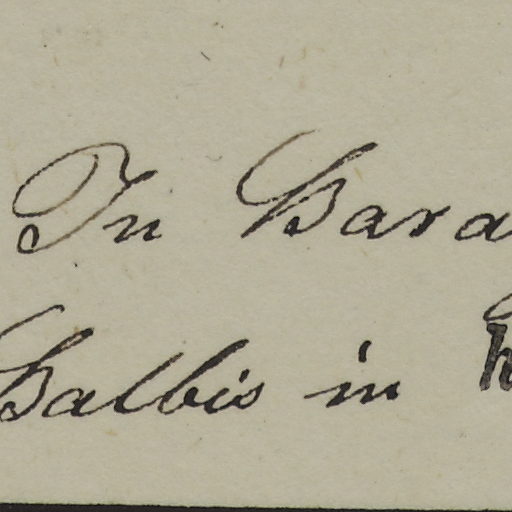 In Bara
Balbis in h